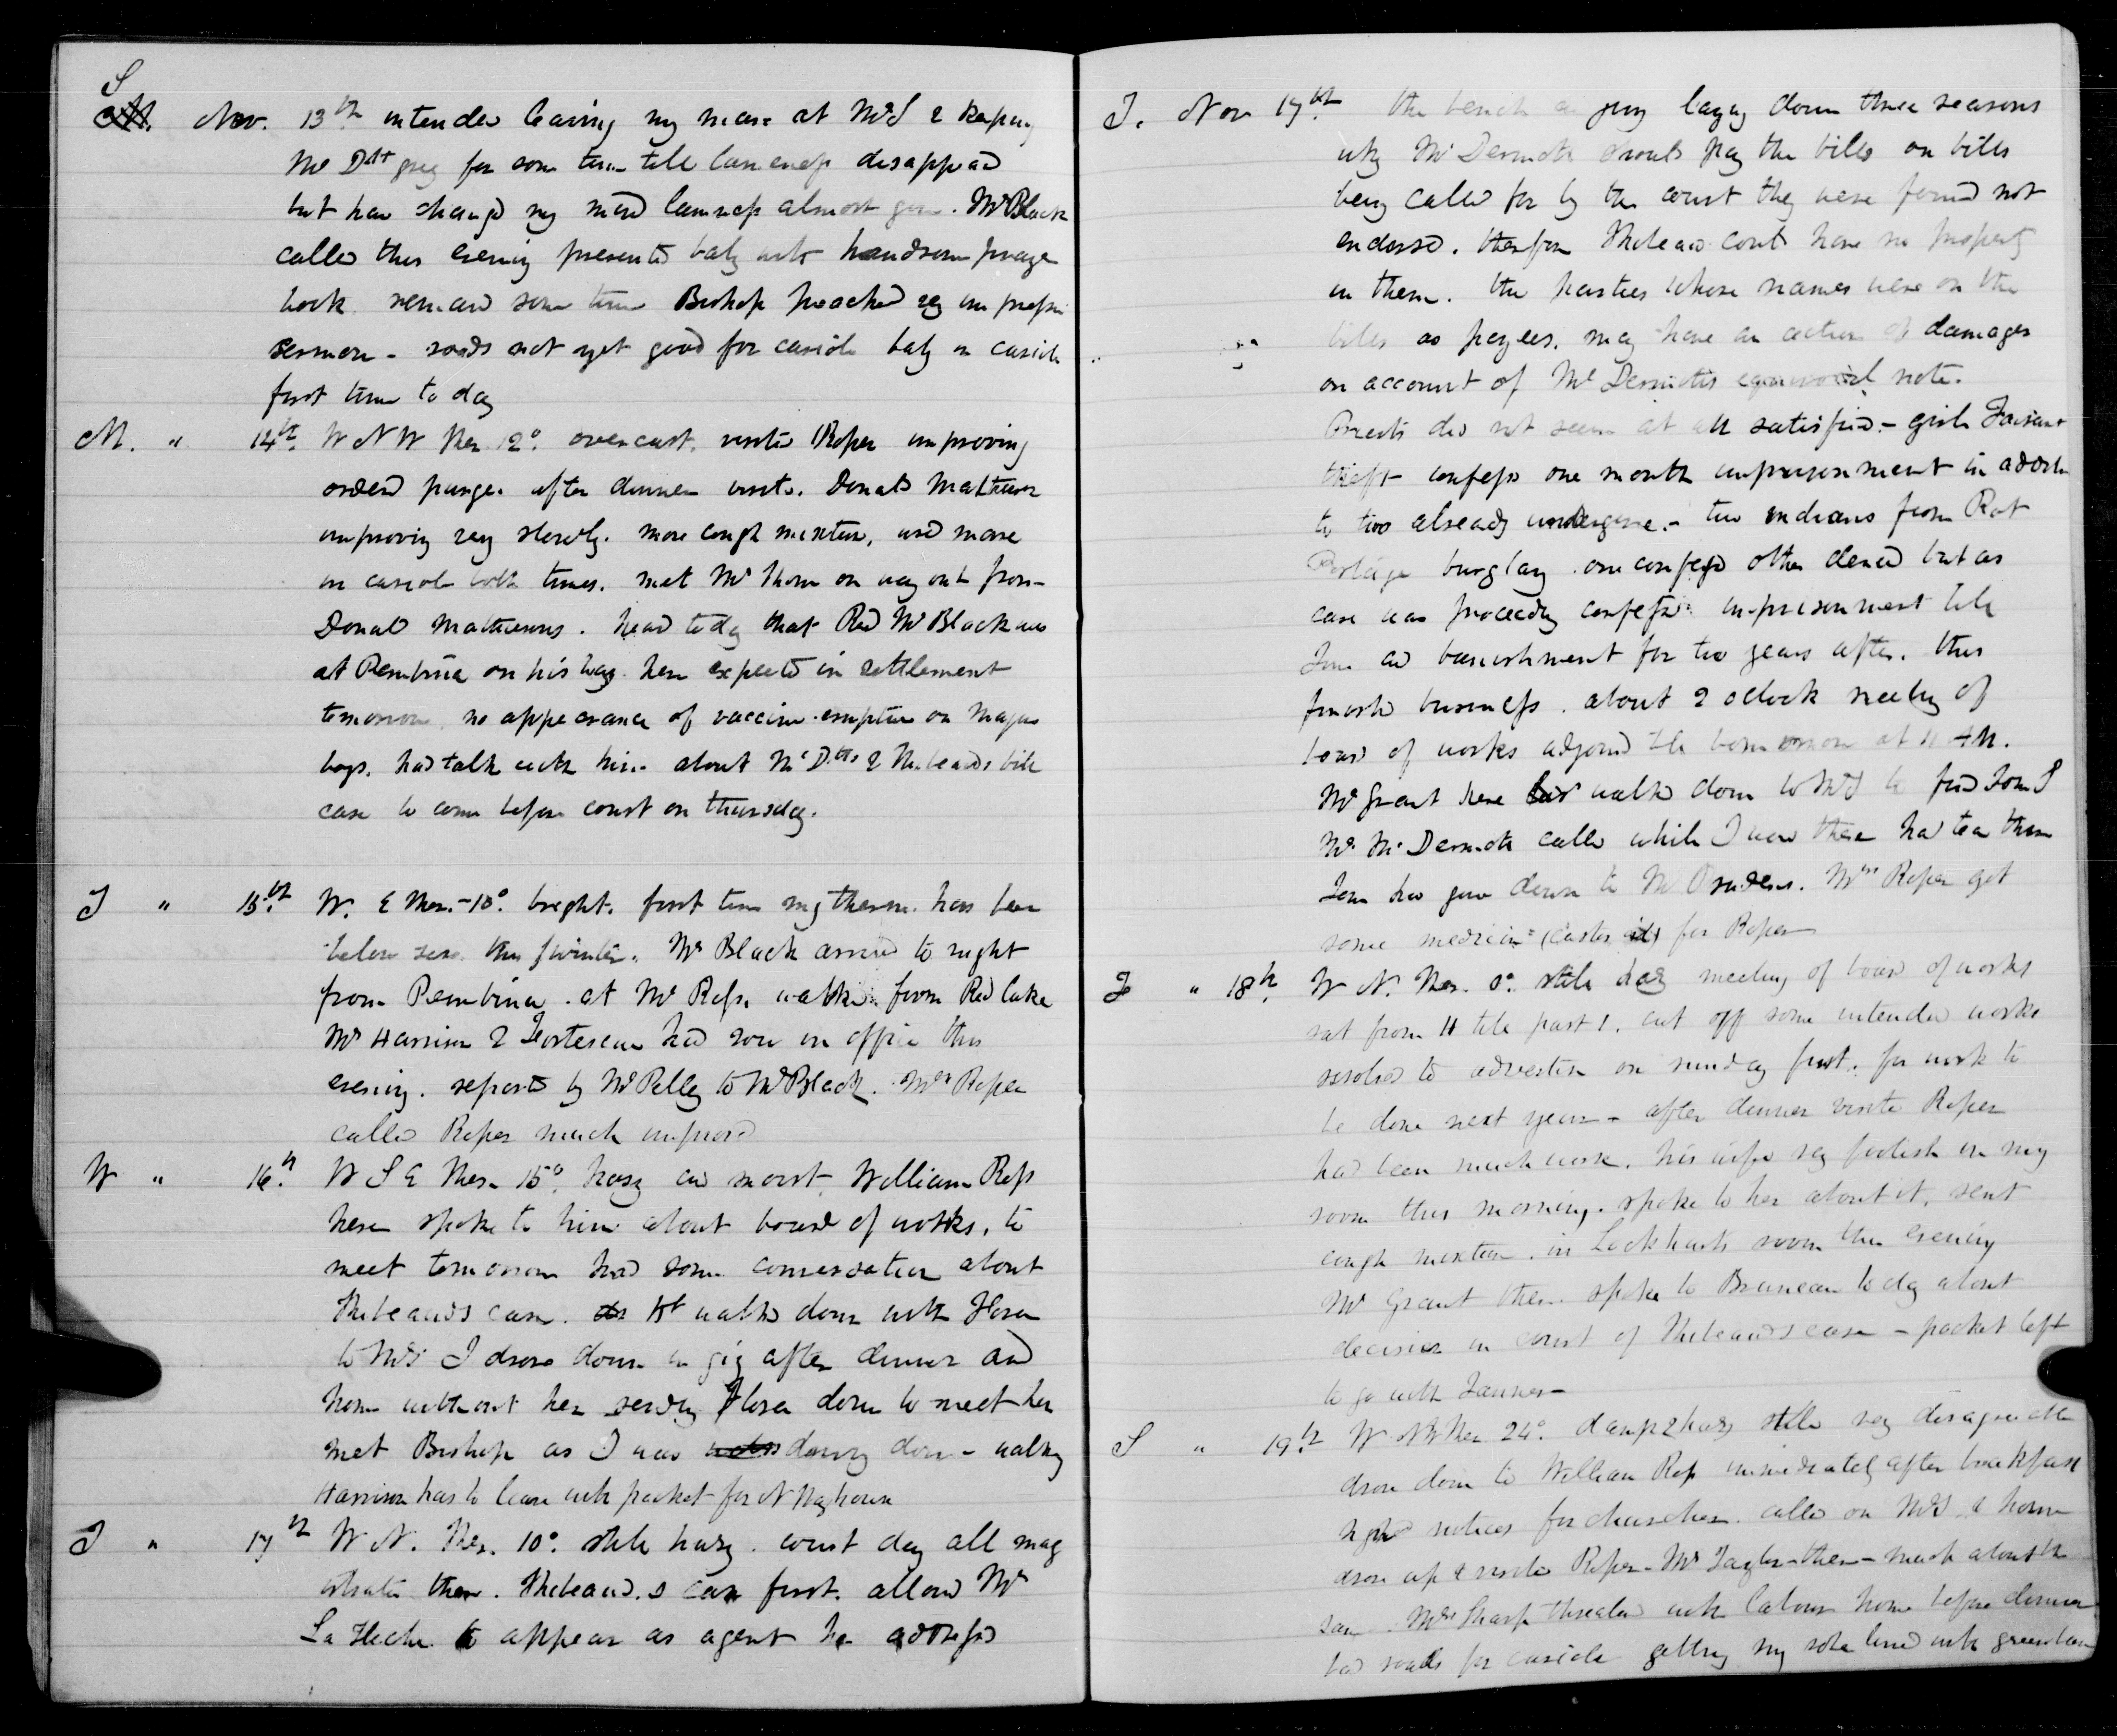 S
M. Nov. 13th intended leaving my mare at McD & keeping
McDtt grey for some time till lameness disappeared
but have changed my mind lameness almost gone. Mr Black
called this evening presented baby with handsome prayer
book remained some time Bishop preached very impressive
sermon - roads not yet good for cariole baby in cariole
first time to day
M. " 14th. W N W Ther 12° overcast. visited Roper improving
ordered purge. after dinner visited Donald Matheson
improving very slowly. more cough mixture, used mare
in cariole both times. met Mr Thom on way out from
Donald Mathesons. heard today that Red Mr Black was
at Pembina on his way here expected in settlement
tomorrow no appearance of vaccine eruption on Majors
boys. had talk with him about McDtts & Thibeauds bill
case to come before court on thursday.
T " 15th W. E Ther. -10°. bright. first time my therm. has been
below zero this winter. Mr Black arrived to night
from Pembina. at Mr Ross. walked from Red Lake
Mr Harrison & Fortescue had row in office this
evening. reported by Mr Pelly to Mr Black. Mrs Roper
called Roper much improved
W " 16th. W S E Ther 15° hazy and moist. William Ross
here spoke to him about board of works, to
meet tomorrow had some conversation about
Thibeauds case. walked down with Flora
to McDs I drove down in gig after dinner and
home without her sending Flora down to meet her
met Bishop as I was driving down - walking
Harrison has to leave with packet for N Wag house
T " 17th W N. Ther. 10° still hazy. court day all mag
istrates there. Thibeauds case first. allowed Mr
La Fleche to appear as agent he addressed
T. Nov 17th the bench & jury laying down three reasons
why McDermott should pay the bills on bills
being called for by the court they were found not
endorsed. therefore Thibeaud could have no property
in them. the parties whose names were on the
bills as payees. may have an action of damages
on account of McDermotts equivocal note.
Priests did not seem at all satisfied. - girl Faisant
theft confessed one month imprisonment in addition
to two already undergone. - two indians from Rat
Portage burglary. one confessed other denied but as
case was proceeding confessed imprisonment till
June and banishment for two years after. this
finished business. about 2 oclock meeting of
board of works adjourned till tomorrow at 11 AM.
Mr Grant here walked down to McD to find Tom
Mr McDermott called while I was there had tea there
Tom had gone down to Mr Mrs Roper got
some medicine (castor oil) for Roper
F " 18th. W N. Ther. 0°. still hazy meeting of board of works
sat from 11 till past 1. cut off some intended works
resolved to advertise on sunday first. for work to
be done next year - after dinner visited Roper
had been much worse. his wife very foolish in my
room this morning. spoke to her about it. sent
cough mixture. in Lockharts room this evening
Mr Grant there. spoke to Bruneau today about
decision in court of Thibeauds case - packet left
to go with Tanner -
S " 19th W NW Ther 24°. damp & hazy still very disagreeable
drove down to William Ross immediately after breakfast
signed notices for churches. called on McD & home
drove up & visited Roper - Mr Taylor there - much about the
same. Mrs Sharp threatened with labour home before dinner
bad roads for cariole getting my robe lined with green